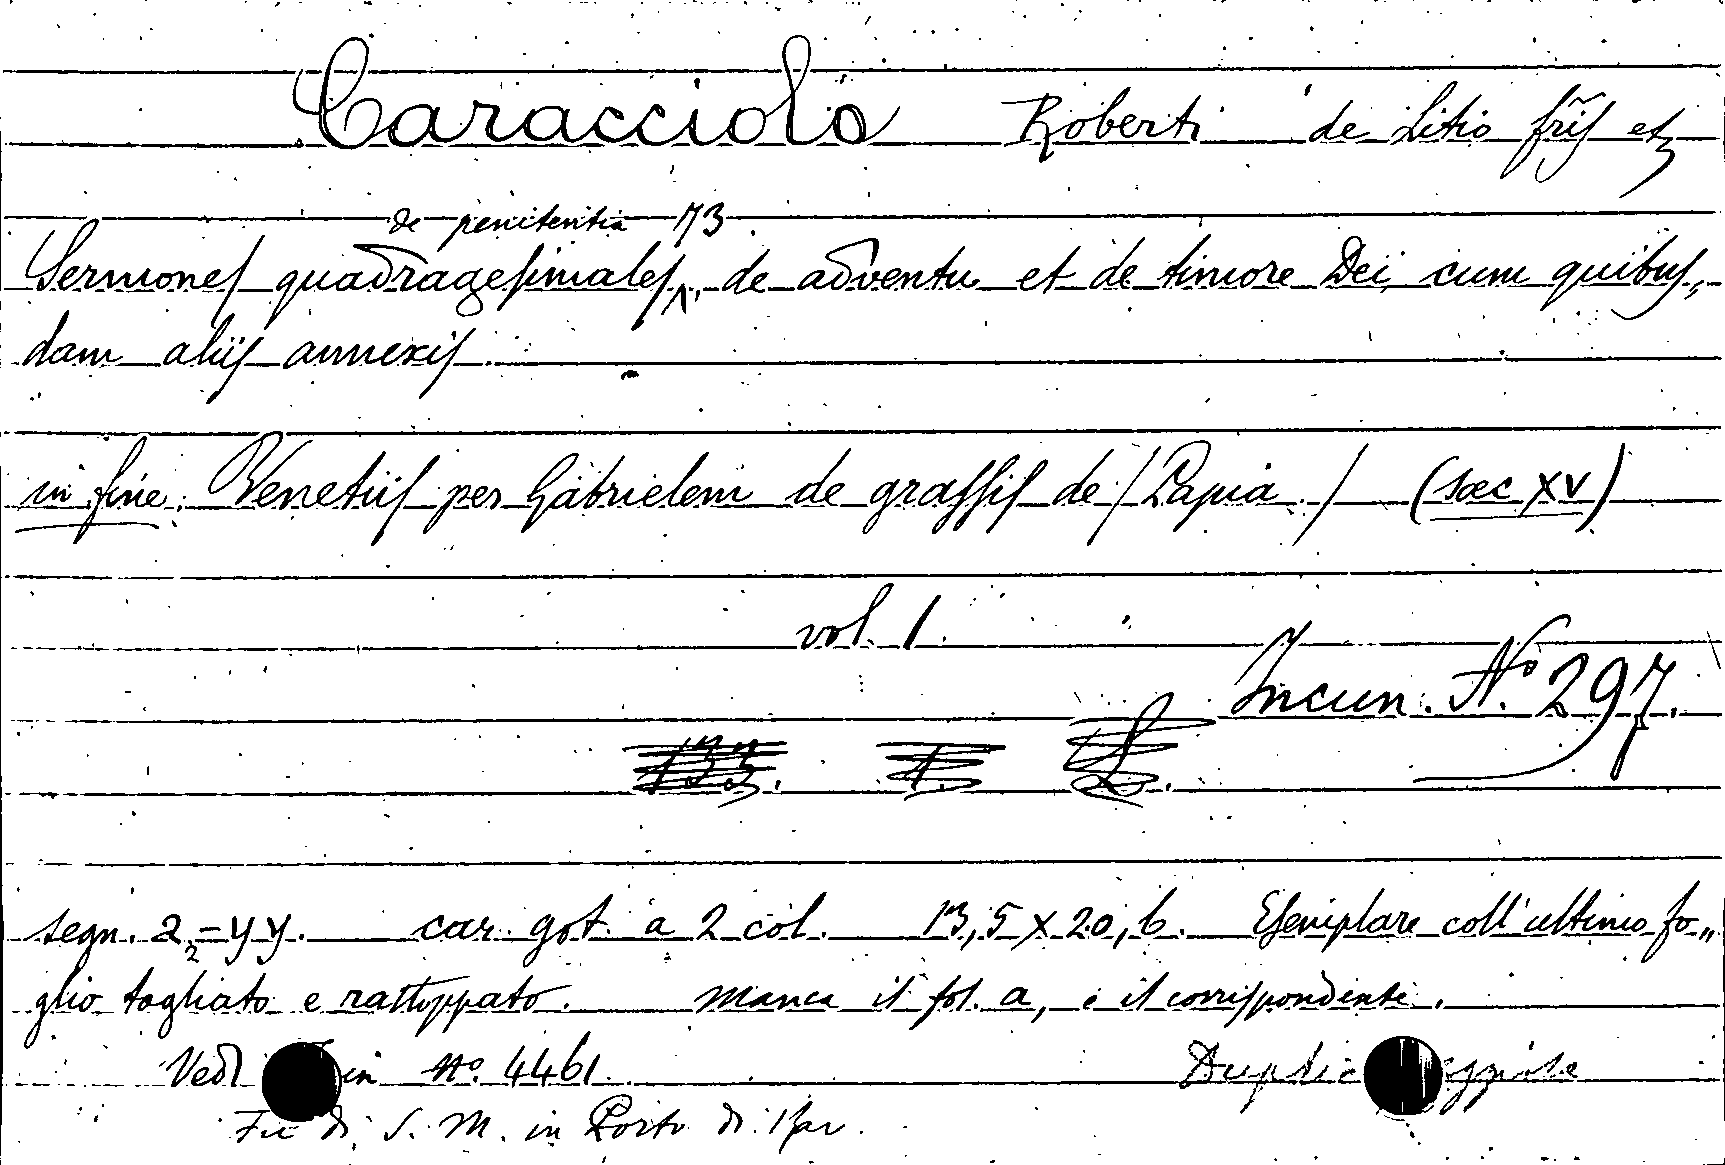 Caracciolo Roberti de Litio frīs etz
de penitentia 73
Sermones quadragesimales, de adventu et de timore Dei, cum quibus„
dam aliis annexis
in fine: Venetiis per Gabrielem de grassis de / Papia / (saec XV)
vol. 1.
Incun. No 297.
segn. a2-yy. car. got. a 2 col. 13,5 x 20,6. Esemplare coll'ultimo fo„
glio tagliato e rattoppato. Manca il fol. a, e il corrispondente.
Vedi No. 4461
Fu di S. M. in Porto di